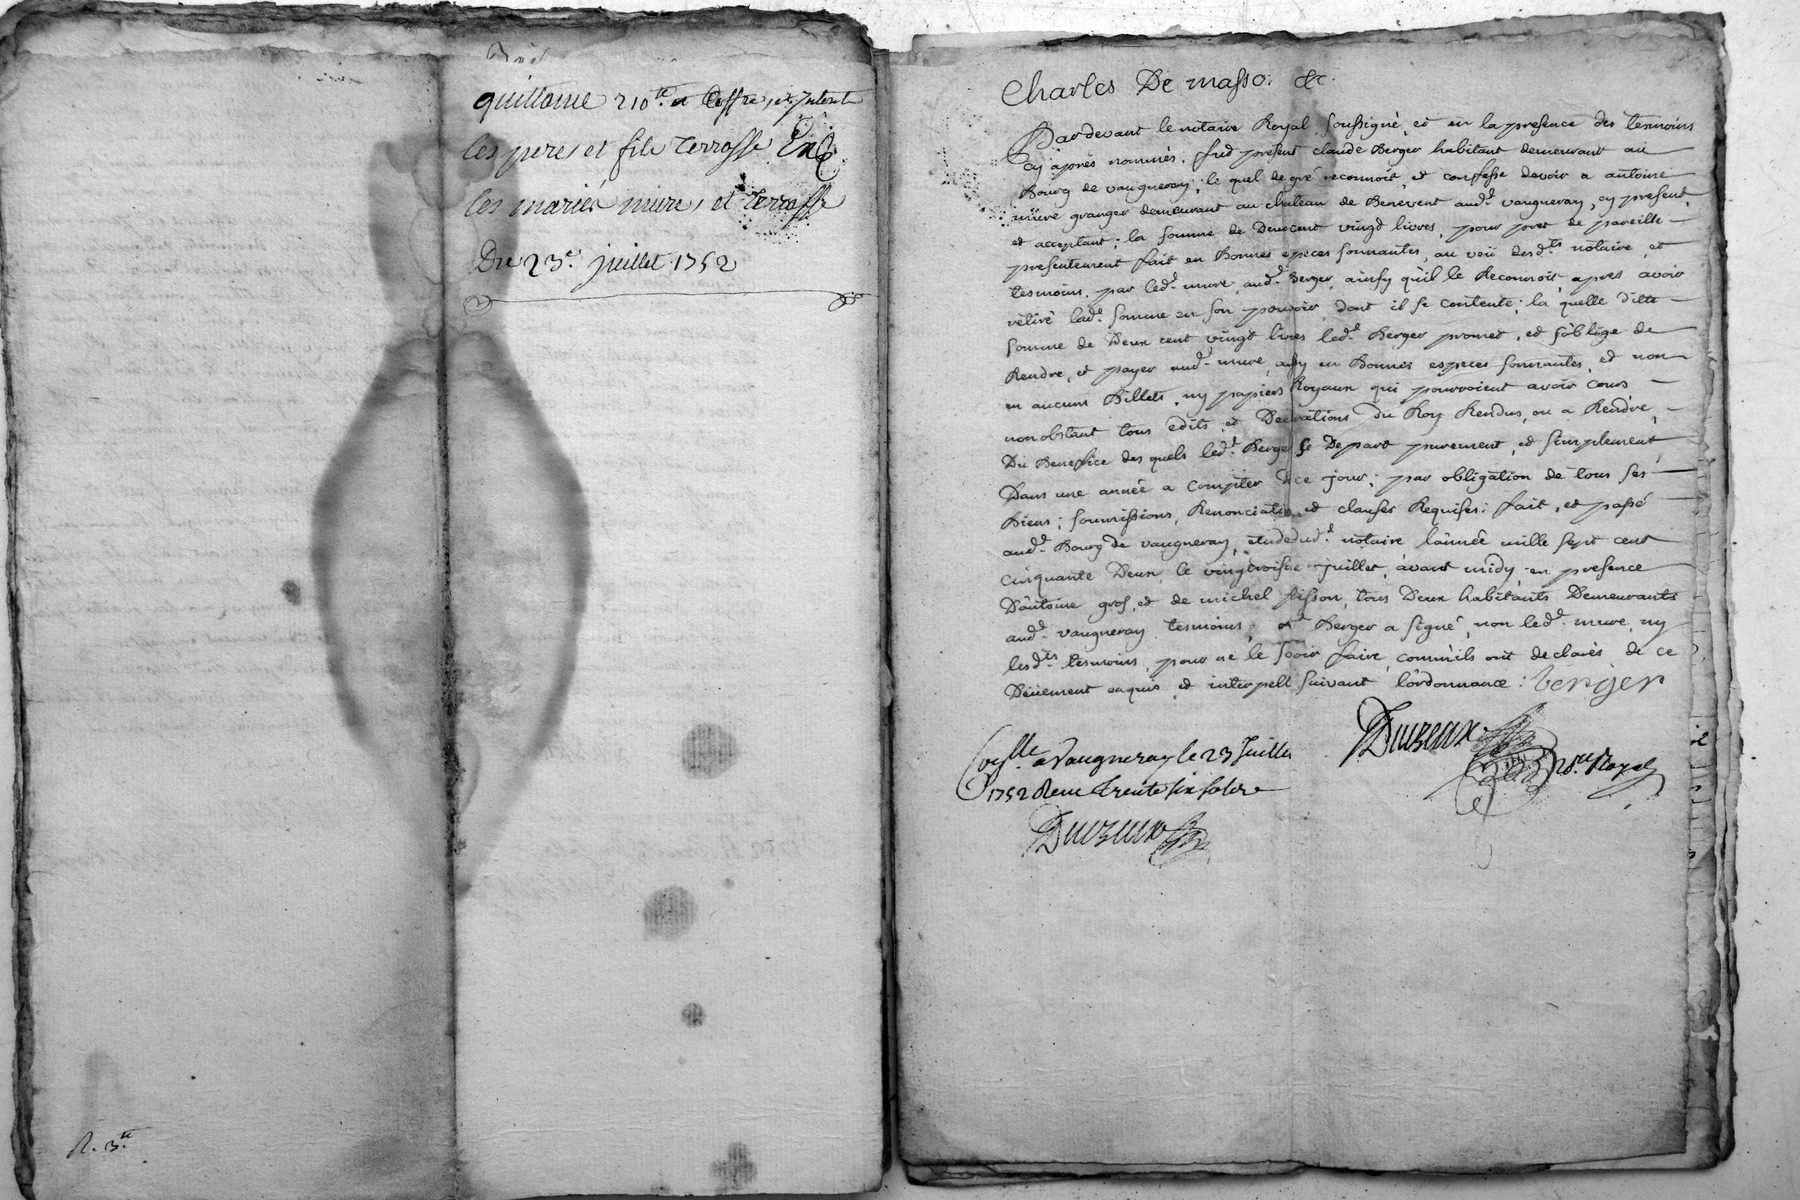 quittance 210.tt et Cession, et Interets
les pere, et fils Terrasse Enc
les mariés mure, et Terrasse
Du 23.e juillet 1752
R. 3.tt
Charles De masso. &c.
Pardevant le notaire Royal soussigné, et en la presence des temoins
cy aprés nommés. fud présent claude Berger habitant demeurant au
Bourg de vaugneray, le quel de gré reconnoit, et confesse devoir a antoine
mure granger demeurant au chateau de Benevent aud.t vaugneray, cy present,
et acceptant; la somme de Deuxcent vingt livres, pour pret de pareille
presentement fait en Bonnes especes sonnantes, au veü desd.ts notaire, et
tesmoins, par led.t mure, aud.t Berger, ainsy qu'il le Reconnoit, apres avoir
retiré lad.e somme en son pouvoir, dont il se contente; la quelle ditte
somme de Deux cent vingt livres led.t Berger promet, et s'oblige de
Rendre, et payer aud.t mure, aussy en Bonnes especes sonnantes, et non
en aucuns Billets, ny papiers Royaux qui pourroient avoir cours
nonobstant tous edits, et Declarations du Roy Rendus, ou a Rendre,
Du Benefice des quels led.t Berger se Depart purement, et simplement,
Dans une année a compter de ce jour; par obligation de tous ses
Biens; soumissions, Renonciations, et clauses Requises; fait, et passé
aud.t Bourg de vaugneray, etude dud.t notaire l'année mille sept cent
cinquante Deux, le vingtroisie juillet, avant midy, en presence
D'antoine gros, et de michel fisson, tous Deux habitants Demeurants
aud.t vaugneray tesmoins; led.t Berger a signé, non led.t mure, ny
lesd.ts tesmoins, pour ne le scavoir faire, comm'ils ont declarés de ce
Deüement enquis, et interpellé suivant l'ordonnance: berger
Duvieux
n.re Royal
Con.lle a Vaugneray le 23 Juillet
1752 Recu trente six sols
Duvieux